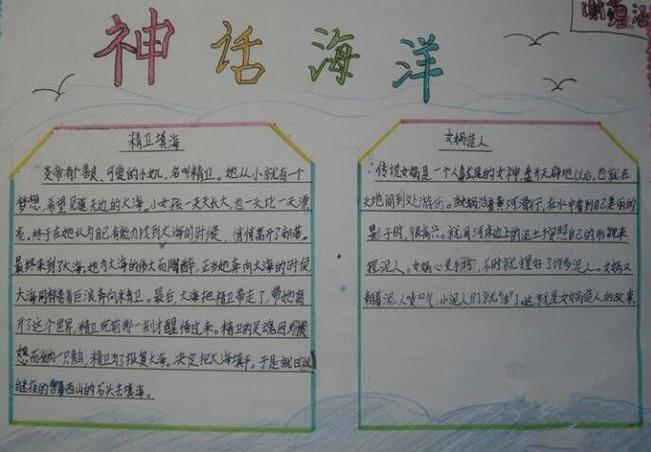 神话海洋
精卫填海
炎帝有个善良、可爱的小女儿，名叫精卫。她从小就有一个
梦想，希望见遍无边的大海。小女孩一天天长大，也一天比一天漂
亮。终于在她认为自己有能力找到大海的时候，悄悄离开了部落。
最终来到了大海，她为大海的伟大而陶醉，正当她奔向大海的时候
大海用着巨浪奔向来精卫。最后，大海把精卫带走了，带她离
开了这个世界，精卫死前那一刻才醒悟过来。精卫的灵魂因为
想而一只鸟，精卫为了报复大海。决定把大海填平。于是就日以
继夜的西山的石头去填海。
女娲造人
传说女娲是一个人首龙尾的女神，盘古开天辟地以后，她就在
天地间到处游乐。当女娲沿着黄河滑行，在水中看到自己美丽的
影子时，很高兴。就用河床边上的泥土按照自己的形貌来
捏泥人。女娲心灵手巧，不时就捏好了许多泥人。女娲又
朝着泥人吹口气，小泥人们就“活”了，这就是女娲造人的故事。